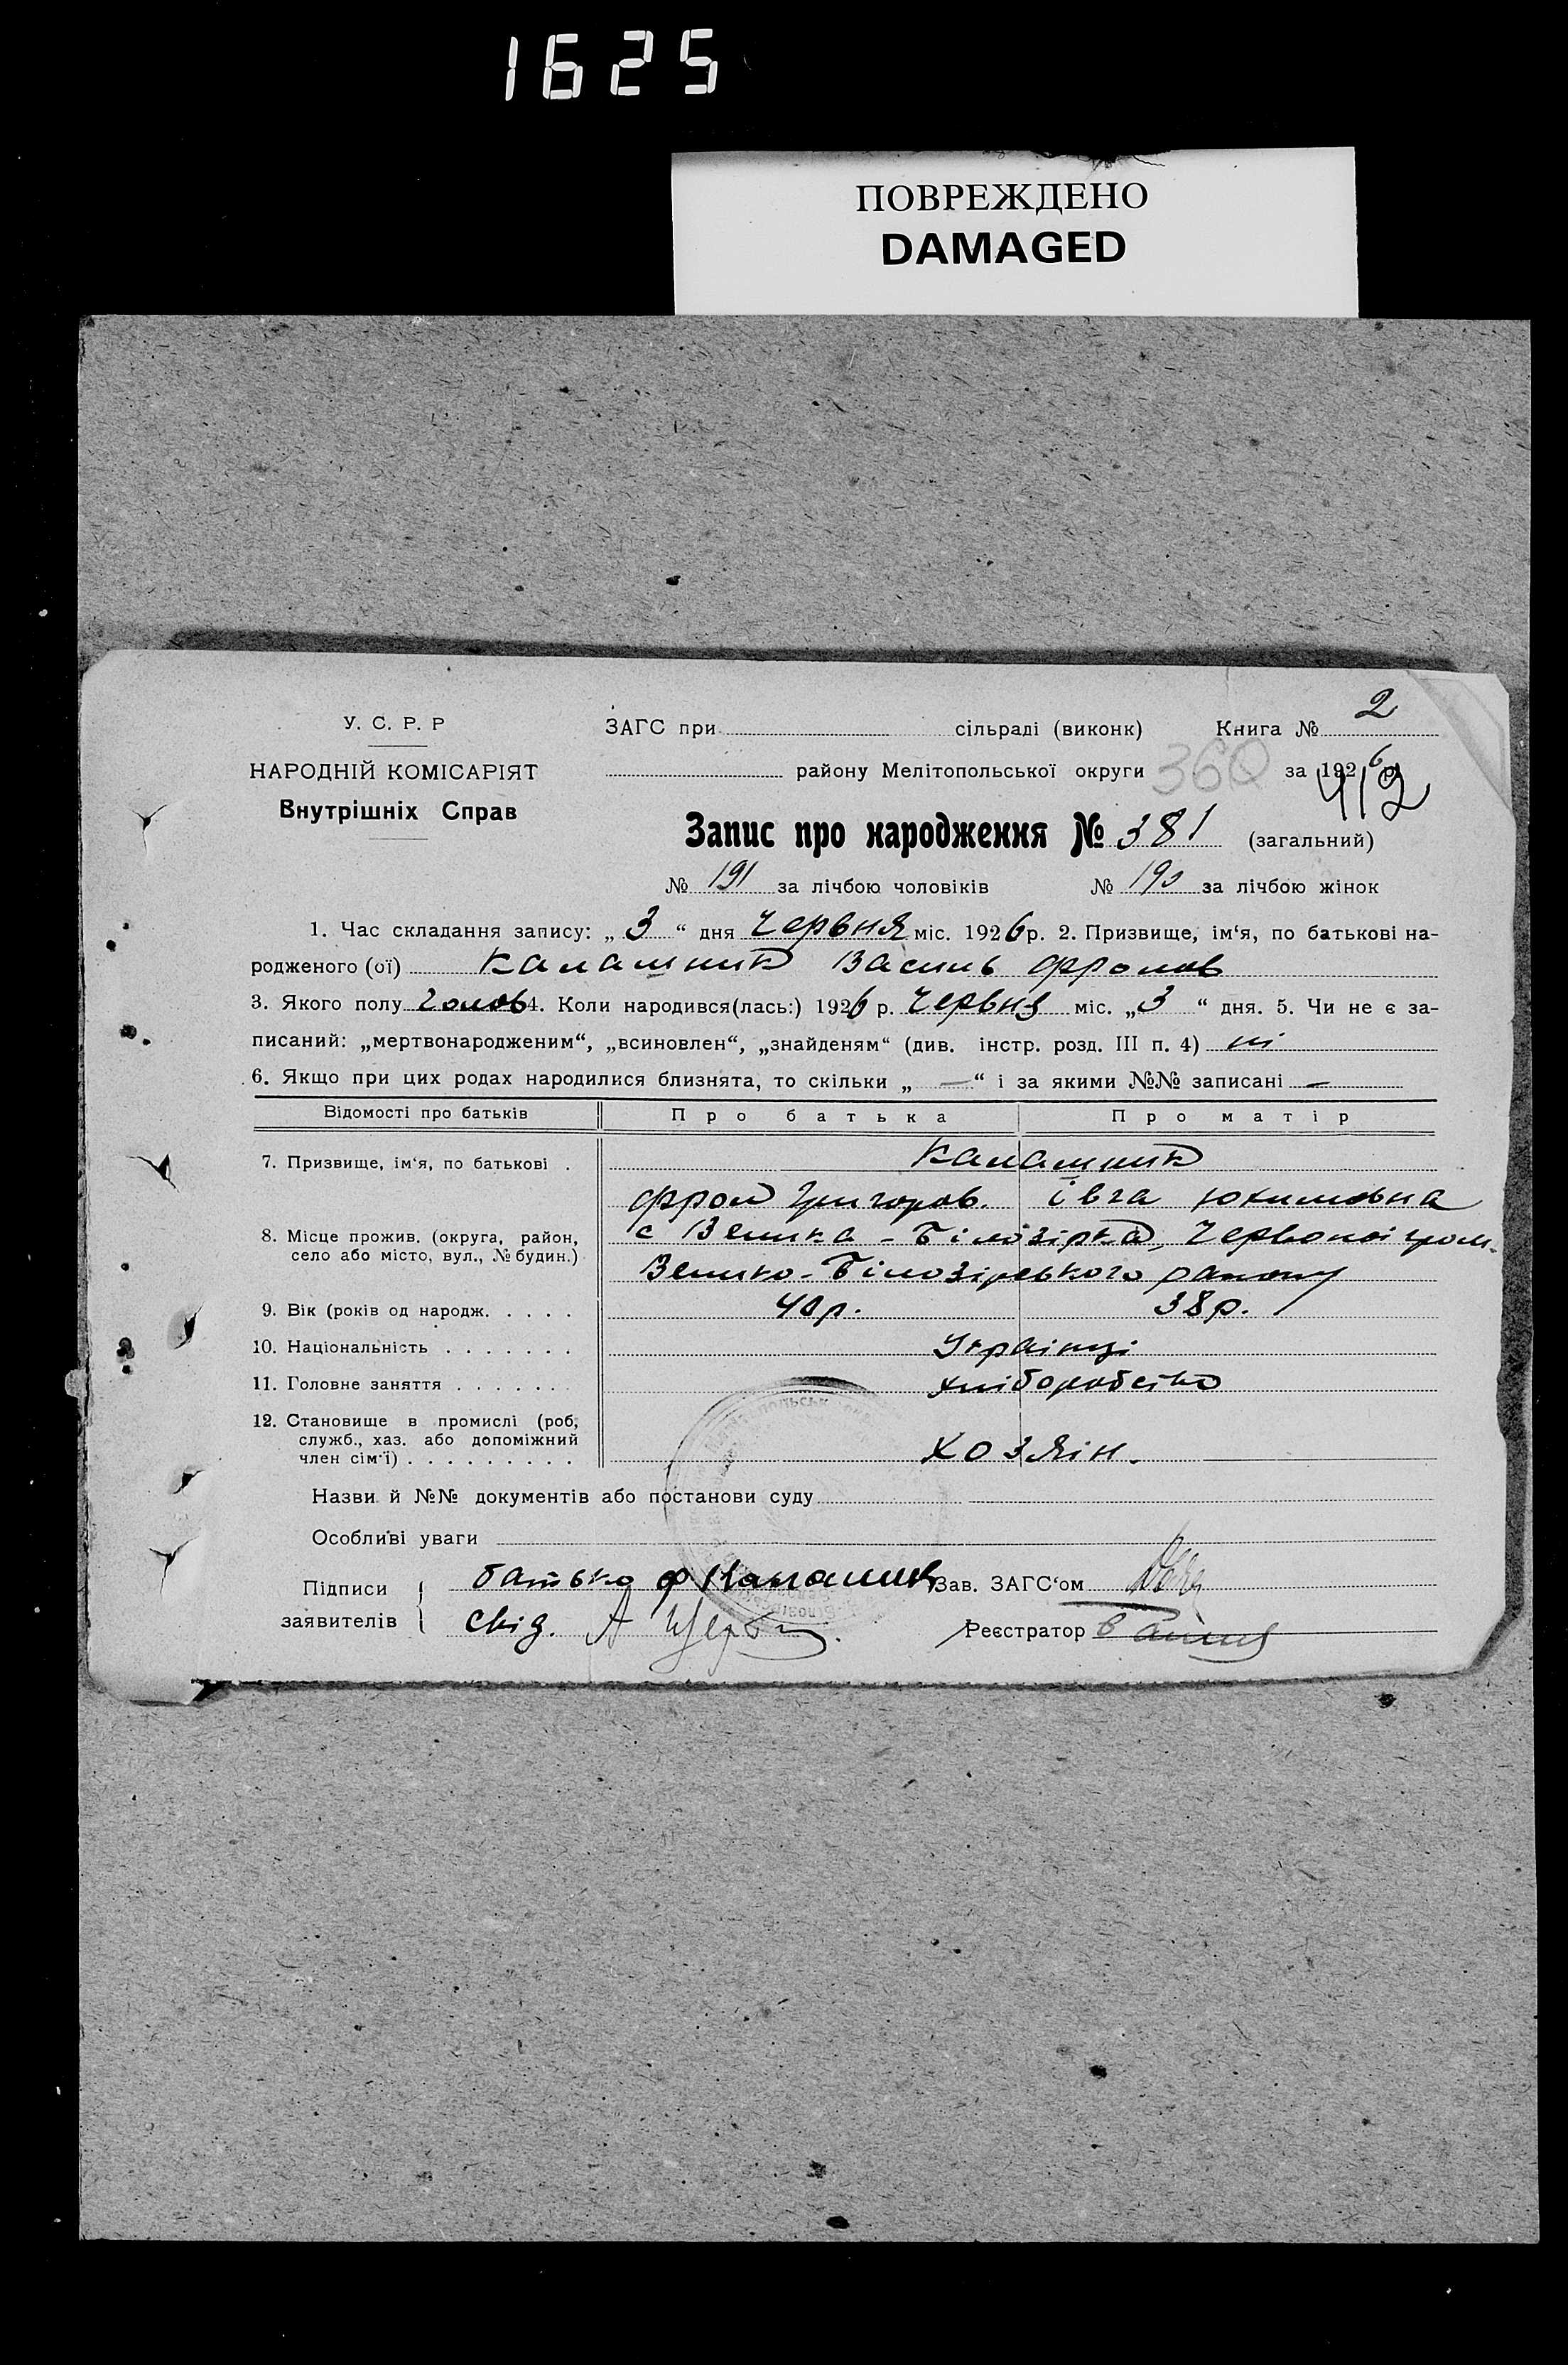 1625
ПОВРЕЖДЕНО
DAMAGED
У. С. Р. Р
НАРОДНІЙ КОМІСАРІЯТ
Внутрішніх Справ
ЗАГС при сільраді (виконк) Книга № 2
району Мелітопольської округи 360 за 1926 р.
412
Запис про народження № 381 (загальний)
№ 191 за лічбою чоловіків № 190 за лічбою жінок
1. Час складання запису: „ 3 “ дня Червня міс. 1926 р. 2. Призвище, ім‘я, по батькові на-
родженого (ої) Калашник Василь Фролов
3. Якого полу Чолов 4. Коли народився(лась:) 1926 р. Червня міс. „ 3 “ дня. 5. Чи не є за-
писаний: „мертвонародженим“, „всиновлен“, „знайденям“ (див. інстр. розд. III п. 4) ні
6. Якщо при цих родах народилися близнята, то скільки „ — “ і за якими №№ записані —
Відомості про батьків Про батька Про матір
7. Призвище, ім‘я, по батькові . Калашник
Фрол Григоров. Івга Юхимовна
8. Місце прожив. (округа, район, с Велика - Білозірка, Червоної гром.
село або місто, вул., № будин.)
Велико-Білозірського району
9. Вік (років од народж. . . . . 40 р. 38 р.
10. Національність . . . . . . . Українці
11. Головне заняття . . . . . . . хліборобство
12. Становище в промислі (роб,
служб., хаз. або допоміжний
член сім‘ї) . . . . . . . . . хозяін.
Назви й №№ документів або постанови суду
Особливі уваги
Підписи батько Ф Калашник Зав. ЗАГС‘ом
заявителів свід. А Реєстратор